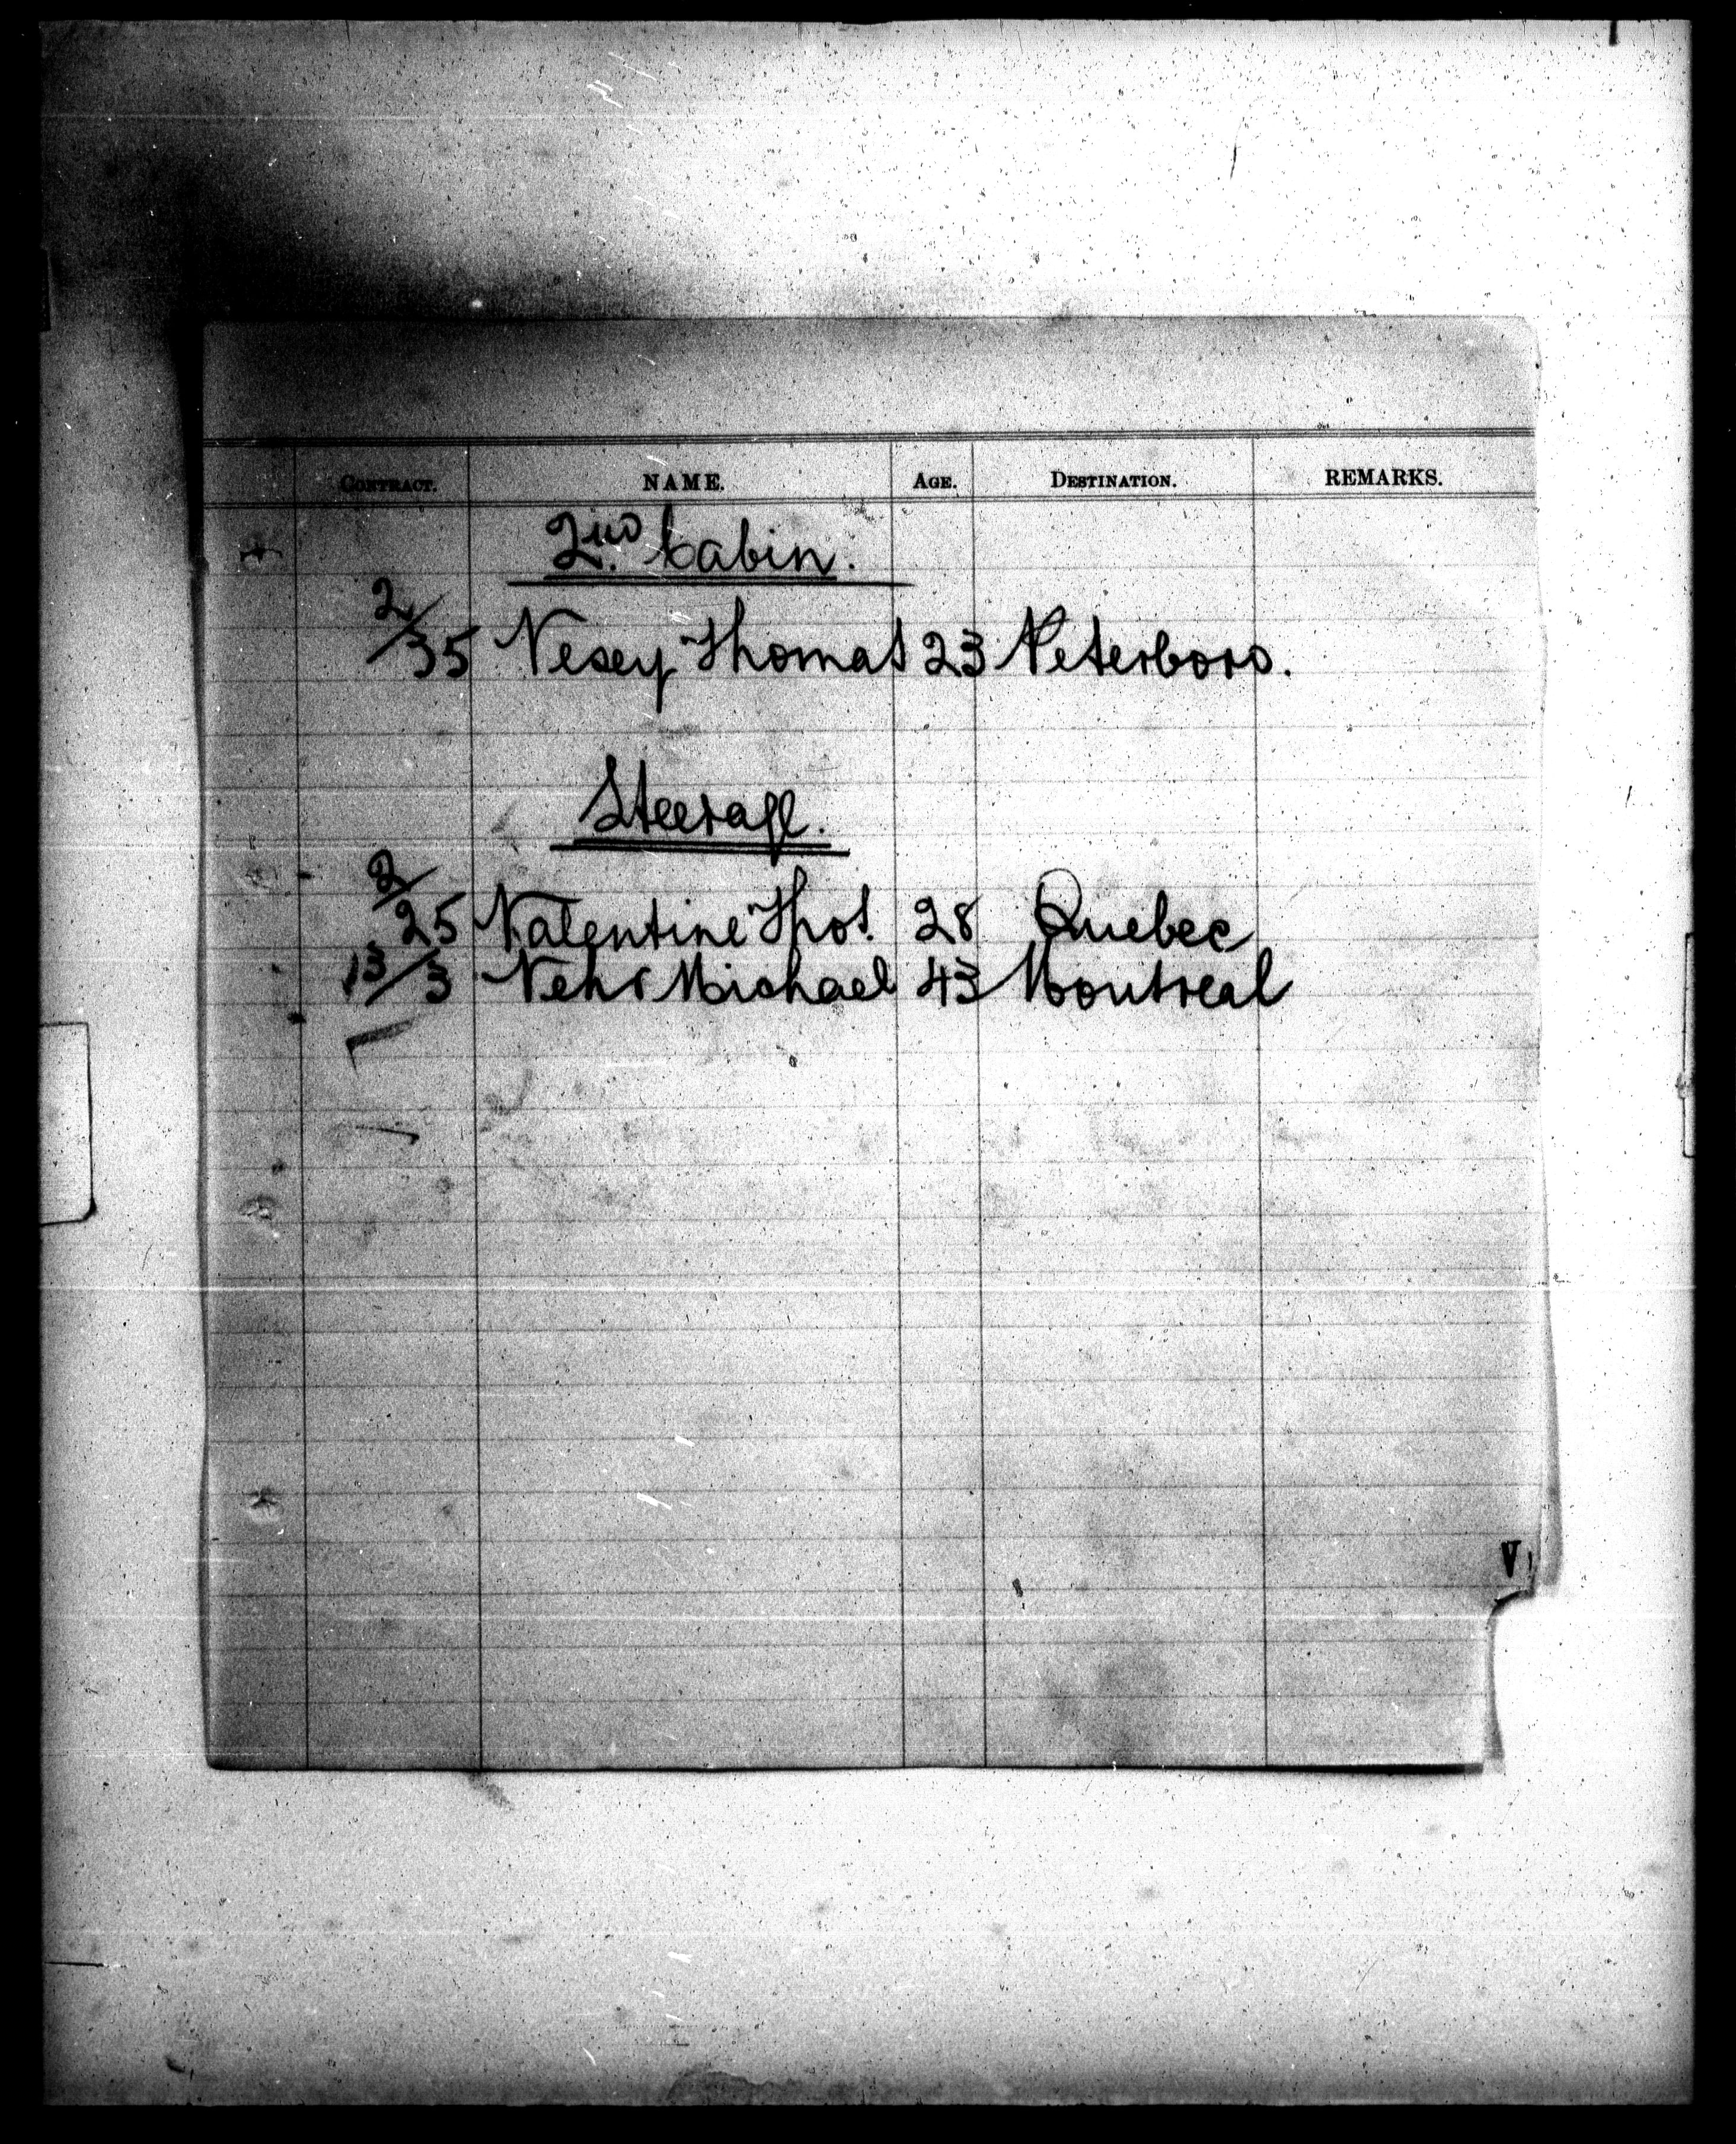 CONTRACT. NAME. AGE. DESTINATION. REMARKS.
2nd Cabin.
2/35 Vesey Thomas 23 Peterboro.
Steerage.
2/25 Valentine Thos. 28 Quebec
13/3 Vehr Michael 43 Montreal
V